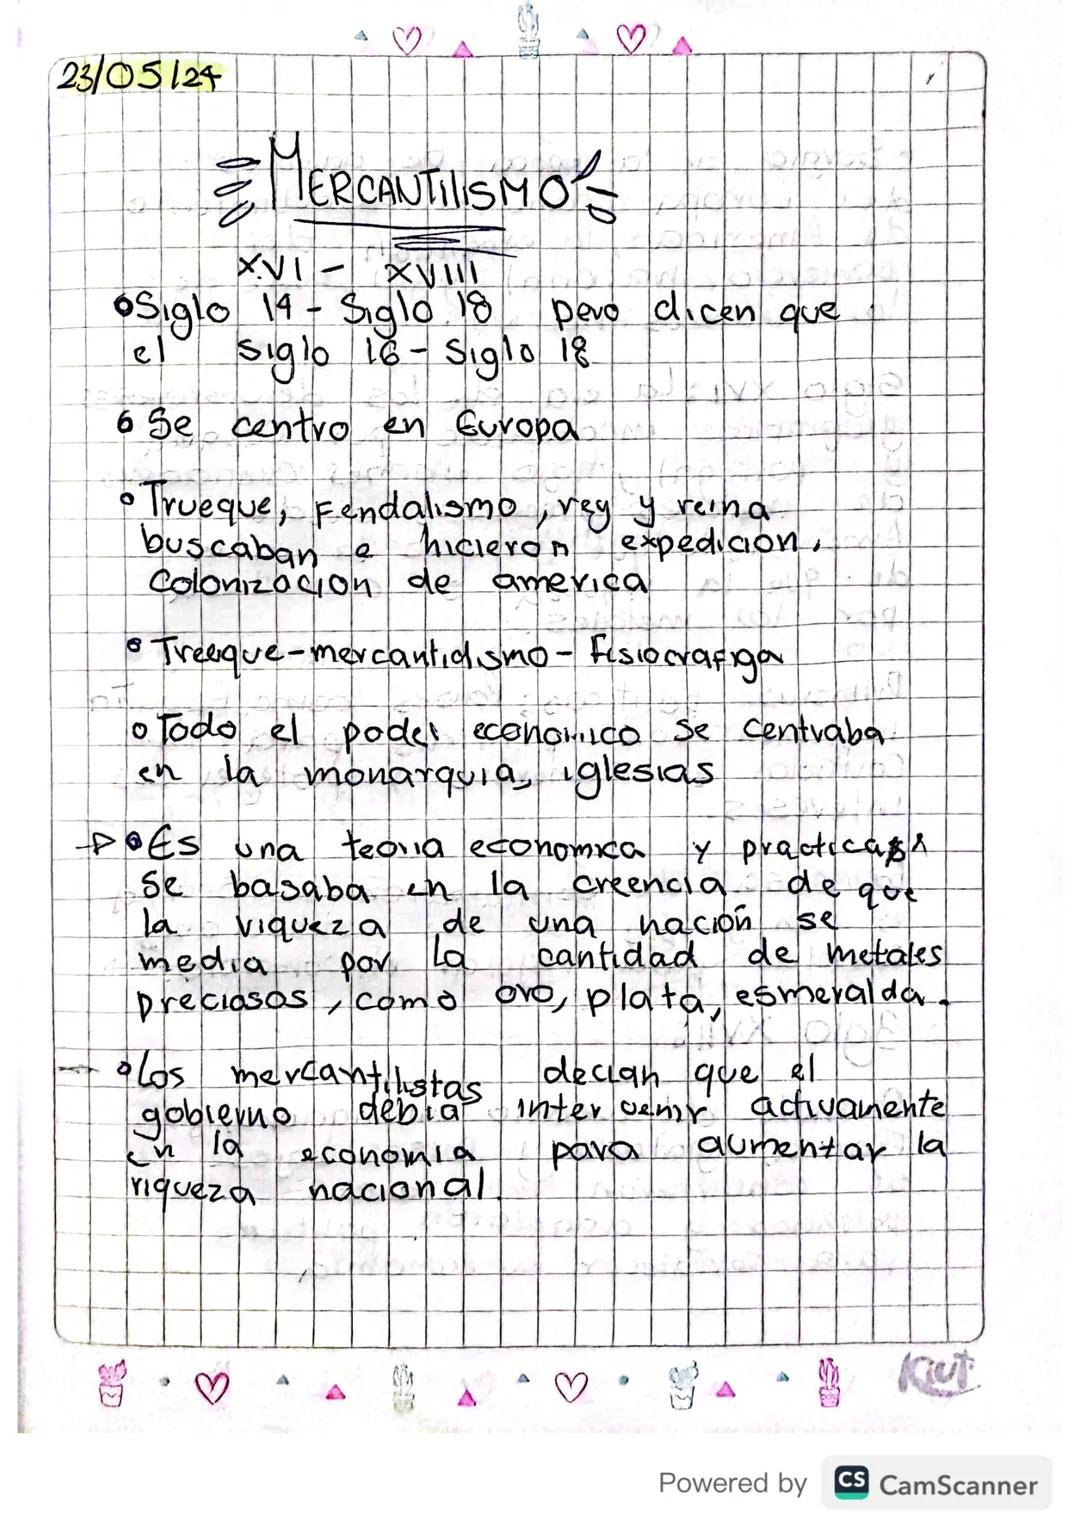 23/05/24
MERCANTILISMO
XVI - XVIII
Siglo 14 - Siglo 18 pero dicen que
el siglo 16 - Siglo 18
Se centro en Europa
Trueque, Fendalismo, rey y reina
buscaban e hicieron expedicion,
Colonizacion de america
Treeque - mercantidismo - Fisiocrafiga
Todo el poder economico se centraba
en la monarquia, iglesias
Es una teoria economica y practicas
Se basaba en la creencia de que
la riqueza de una nacion se
media por la cantidad de metales
preciosos, como oro, plata, esmeralda.
Los mercantilistas decian que el
gobierno debia intervenir activamente
en la economia para aumentar la
riqueza nacional.
Kiut
Powered by CS CamScanner